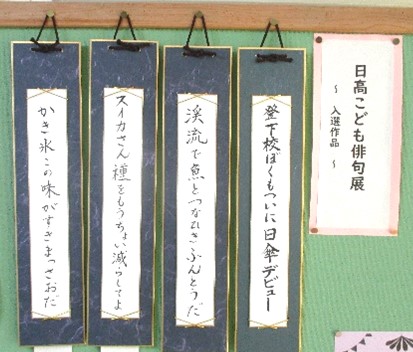 日高こども俳句展
～ 入選作品 ～
登下校ぼくもついに日傘デビュー
渓流で魚とつなひきふんとうだ
スイカさん種をもうちょい減らしてよ
かき氷この味がすきまっさおだ